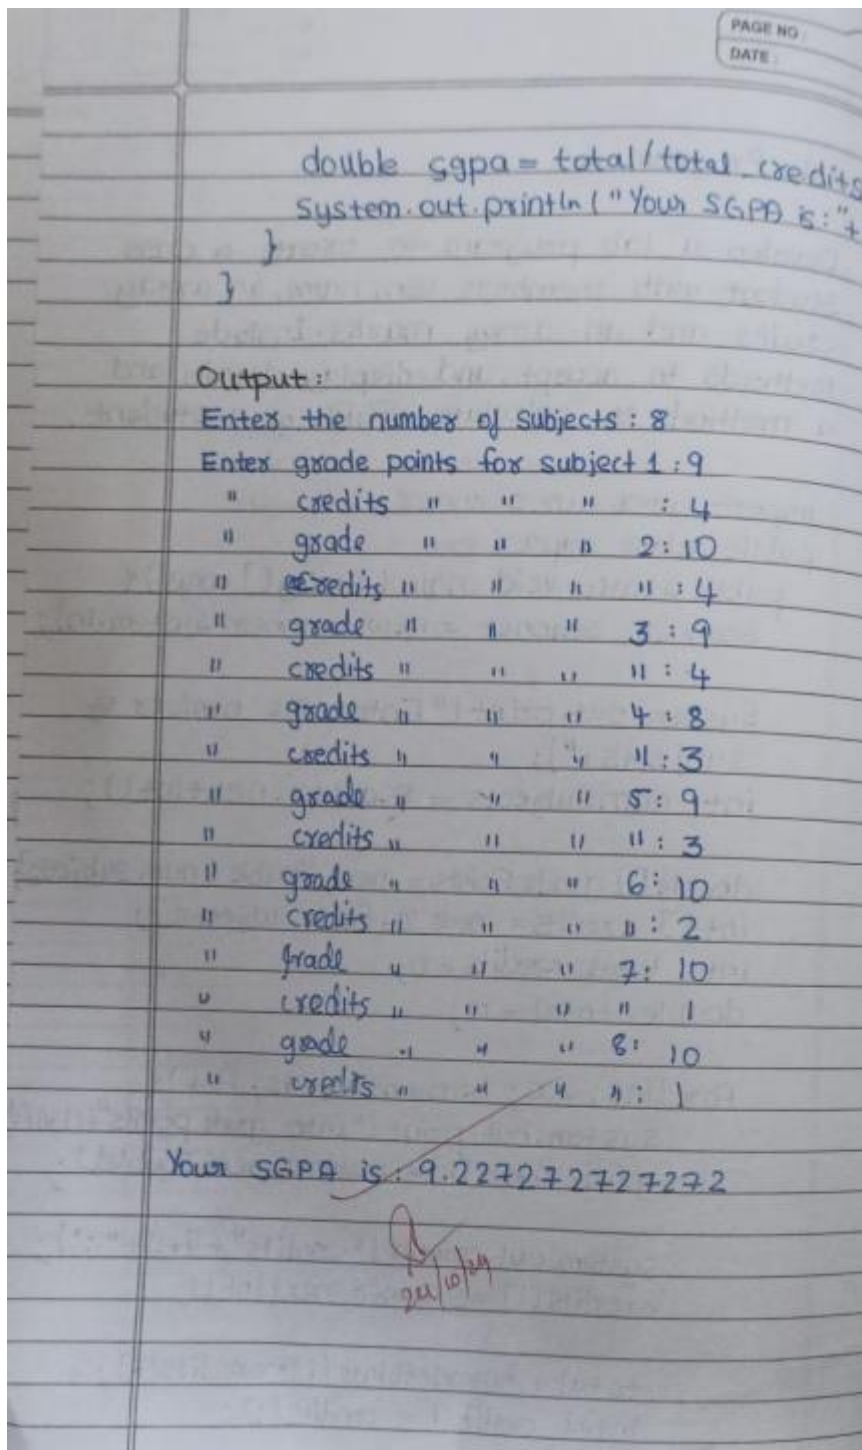 PAGE NO :
DATE :
double sgpa = total/total_credits
System.out.println("Your SGPA is:"+
}
}
Output:
Enter the number of Subjects : 8
Enter grade points for subject 1 : 9
" credits " " " : 4
" grade " " " 2 : 10
" credits " " " " : 4
" grade " " " 3 : 9
" credits " " " " : 4
" grade " " " 4 : 8
" credits " " " " : 3
" grade " " " 5 : 9
" credits " " " " : 3
" grade " " " 6 : 10
" credits " " " " : 2
" grade " " " 7 : 10
" credits " " " " 1
" grade " " " 8 : 10
" credits " " " " : 1
Your SGPA is : 9.227272727272
24/10/24